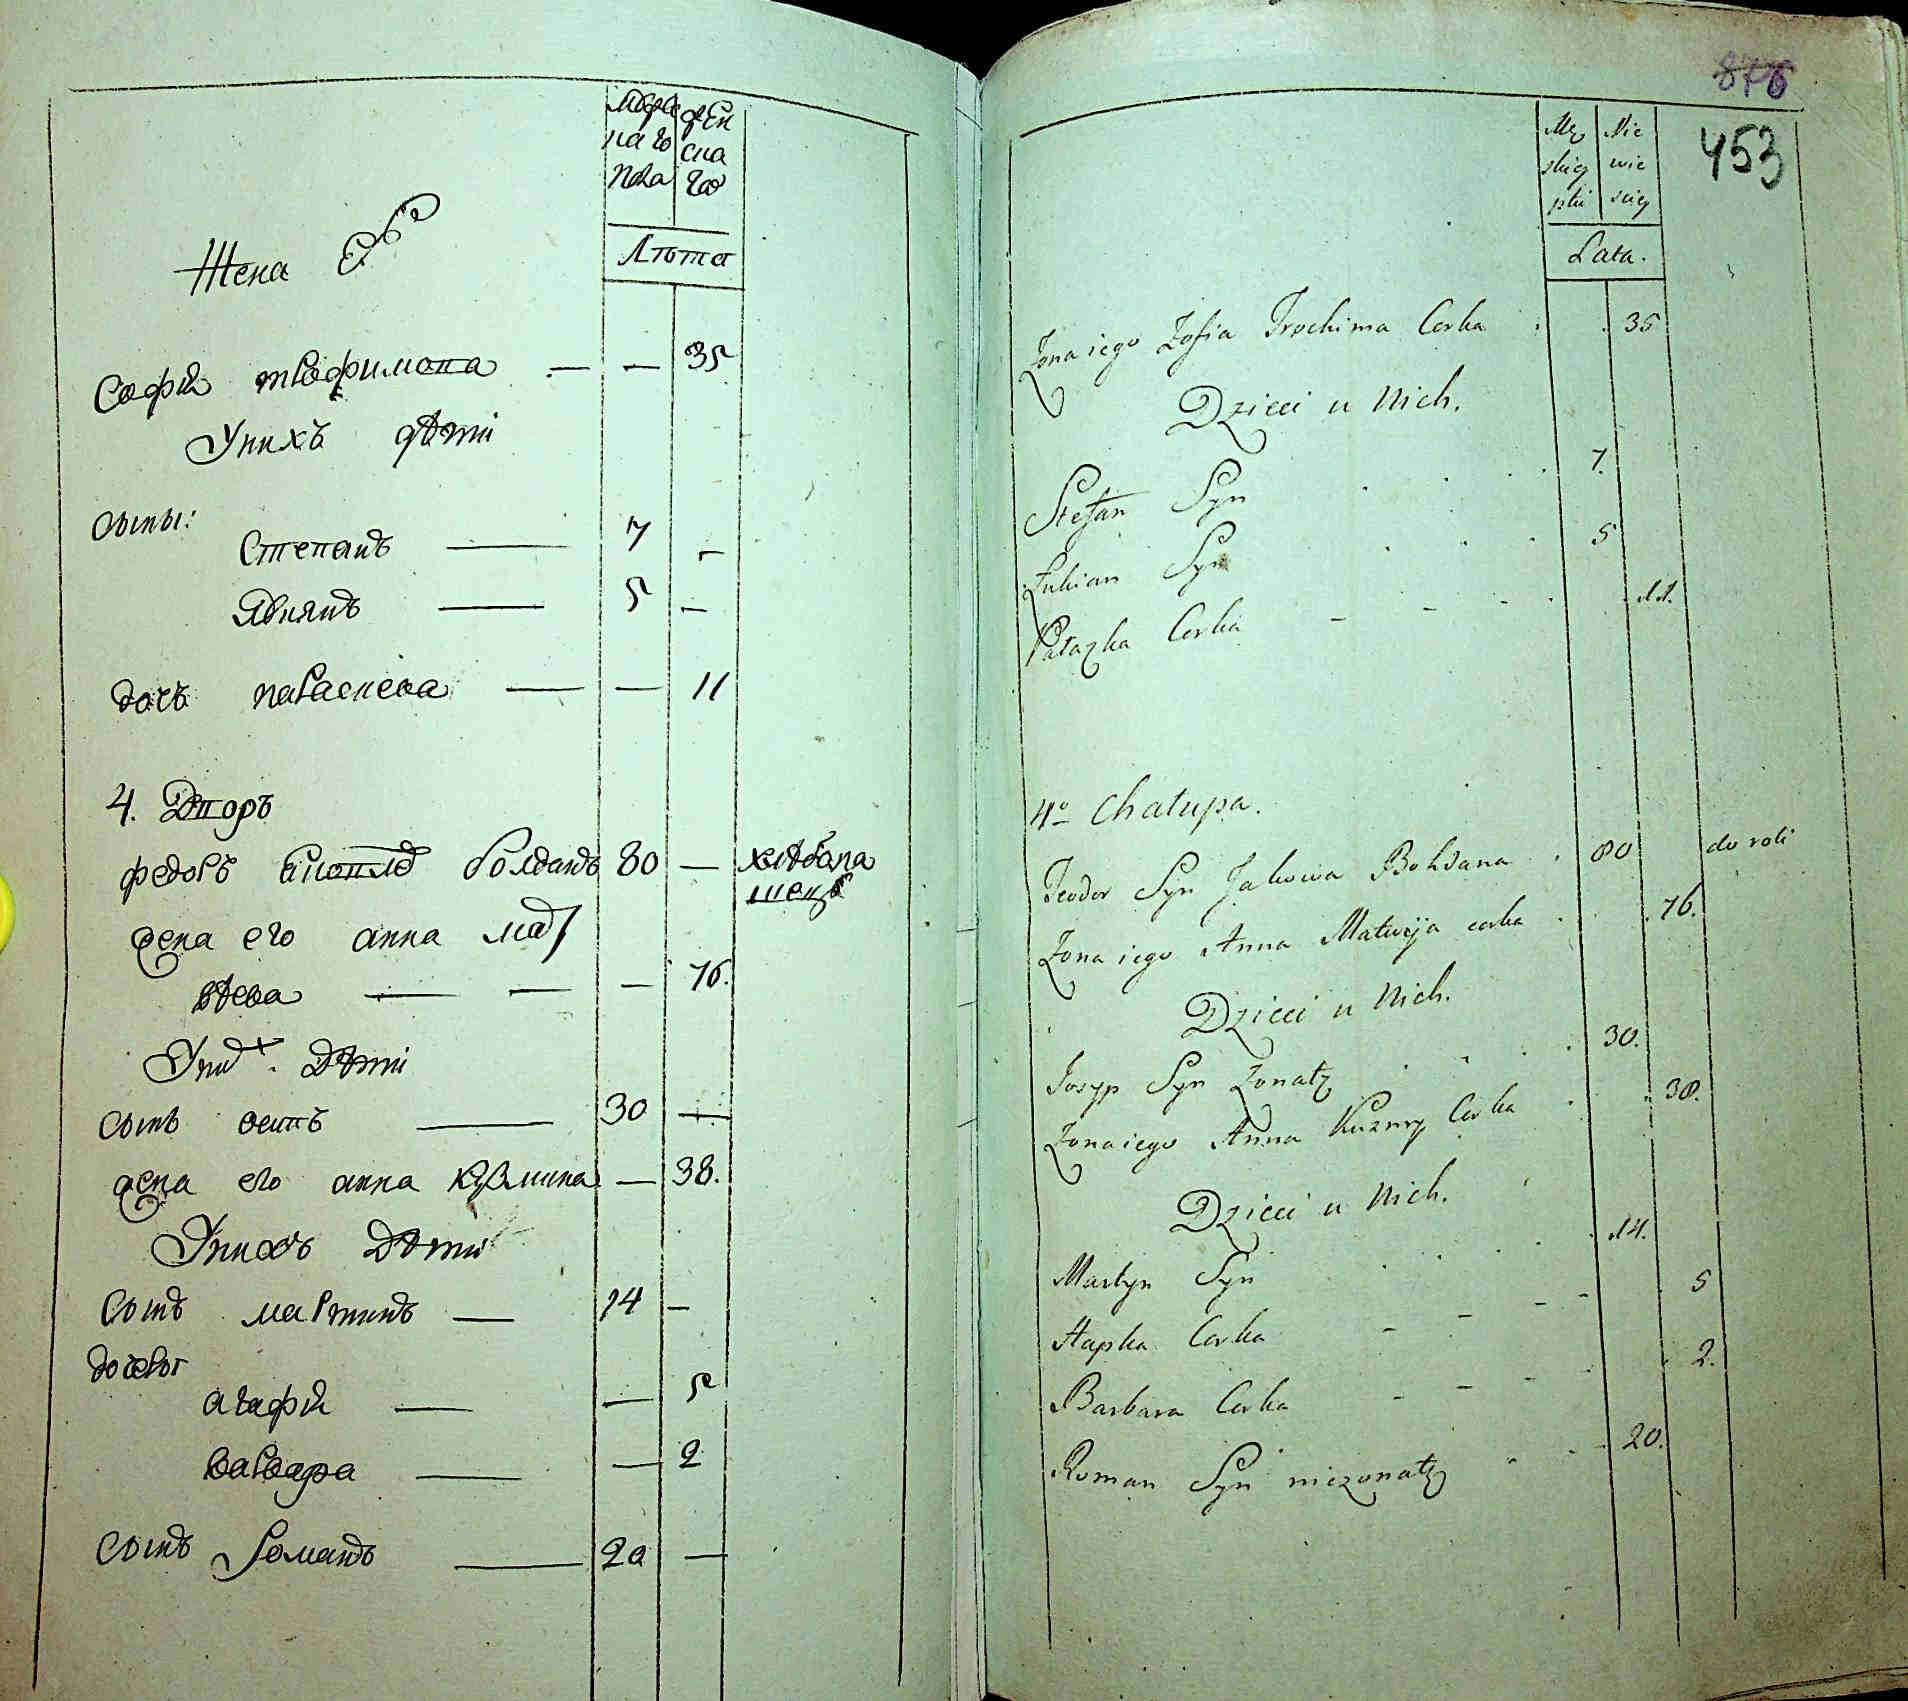 Мужс ժен
каго ска
пола го
Лѣта
Жена Его
Софія трофимова — — 35
Унихъ дѣти
сыны:
Степанъ — 7 —
Якимъ — 5 —
дочь параскева — — 11
4. Дворъ
федоръ яковлевъ болданъ 80 — хлѣбопа
шецъ
жена его анна мат
вѣева — — — 76.
Унихъ. Дѣти
сынъ осипъ — 30 —
жена его анна кузмина — 38.
Унихъ Дѣти
Сынъ мартинъ — 14 —
дочеры
агафія — — 5
варвара — — 2
Сынъ Романъ — 20 —
876
453
Męz Nie
skiey wie
płci sciey
Lata.
Zona iego Zofia Trochima Corka . . 35
Dzieci u Nich.
Stefan Syn . . . 7.
Łukian Syn . . . 5
Pałazka Corka - - - . . 11.
4º Chałupa.
Teodor Syn Jakowa Bohdana . 80 do roli
Zona iego Anna Matweja corka . . 76.
Dzieci u Nich.
Josyp Syn Zonaty . . . . 30.
Zona iego Anna Kuzmy Corka . . 38.
Dzieci u Nich.
Martyn Syn . . . . . 14.
Hapka Corka - - - - . 5
Barbara Corka - - - - . 2.
Roman Syn niezonaty . . . 20.